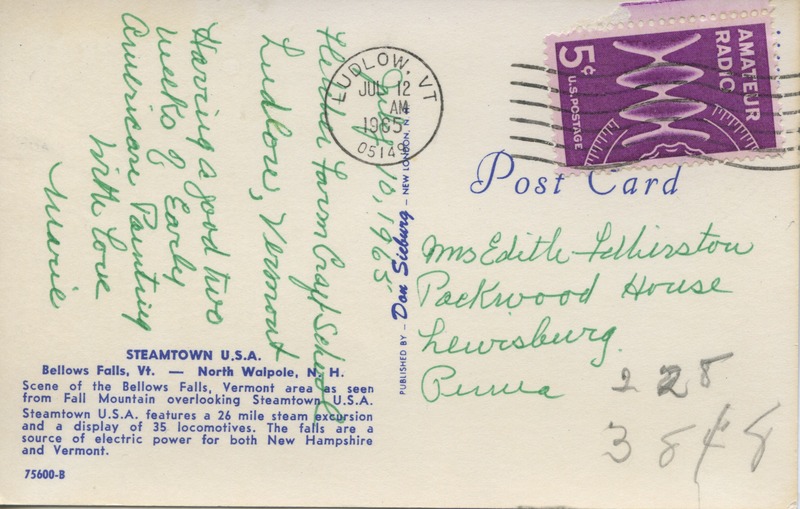 July 10, 1965
Fletcher Farm Craft School
Ludlow, Vermont
Having a good two
weeks of Early
American Painting
With Love
Marie
STEAMTOWN U.S.A.
Bellows Falls, Vt. — North Walpole, N. H.
Scene of the Bellows Falls, Vermont area as seen
from Fall Mountain overlooking Steamtown U.S.A.
Steamtown U.S.A. features a 26 mile steam excursion
and a display of 35 locomotives. The falls are a
source of electric power for both New Hampshire
and Vermont.
75600-B
PUBLISHED BY — Don Sieburg — NEW LONDON, N. H.
LUDLOW, VT
JUL 12
AM
1965
05149
AMATEUR
RADIO
5¢
U.S. POSTAGE
Post Card
Mrs Edith Fetherston
Packwood House
Lewisburg.
Penna
228
3848